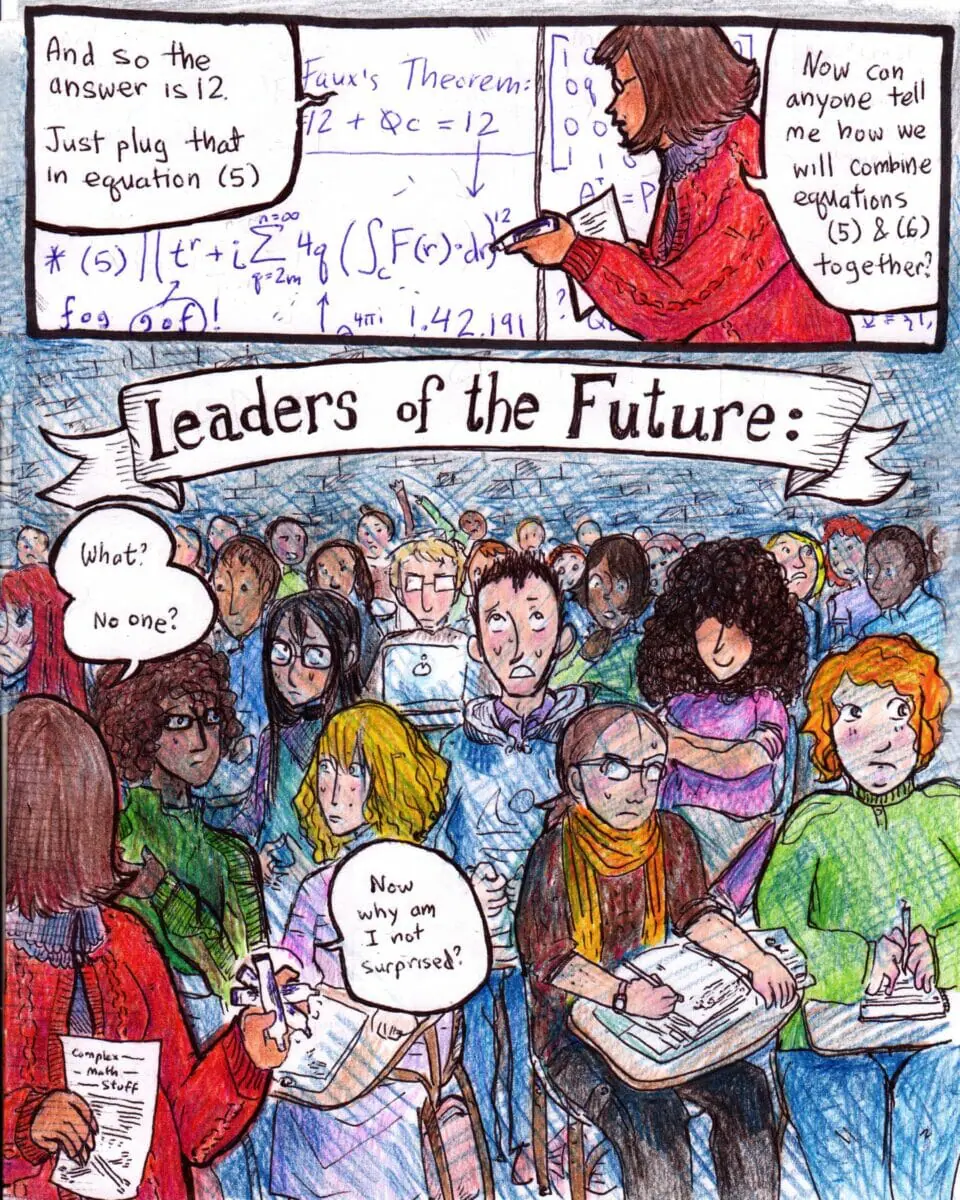 And so the
answer is 12.
Just plug that
in equation (5)
Faux's Theorem:
12 + Qc = 12
* (5) ||t^r + i ∑ 4q (∫_C F(r)·dr)^12
n=∞
q=2m
fog (gof)!
4πi
1.42.191
Now can
anyone tell
me how we
will combine
equations
(5) & (6)
together?
Leaders of the Future:
What?
No one?
Now
why am
I not
surprised?
Complex
Math
Stuff